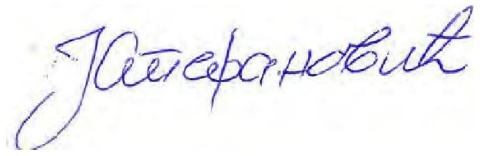 JСтефановић